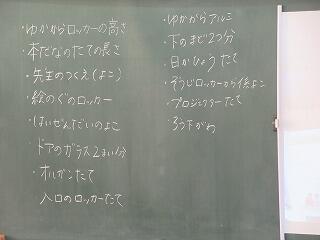 ・ゆかからロッカーの高さ
・本だなのたての長さ
・先生のつくえ(よこ)
・絵のぐのロッカー
・はいぜんだいのよこ
ドアのガラス2まい分
・オルガンたて
入口のロッカーたて
・ゆかからアルミ
・下のまど2つ分
・日かひょう たて
・そうじロッカーから係よこ
・プロジェクターたて
・ろう下がわ